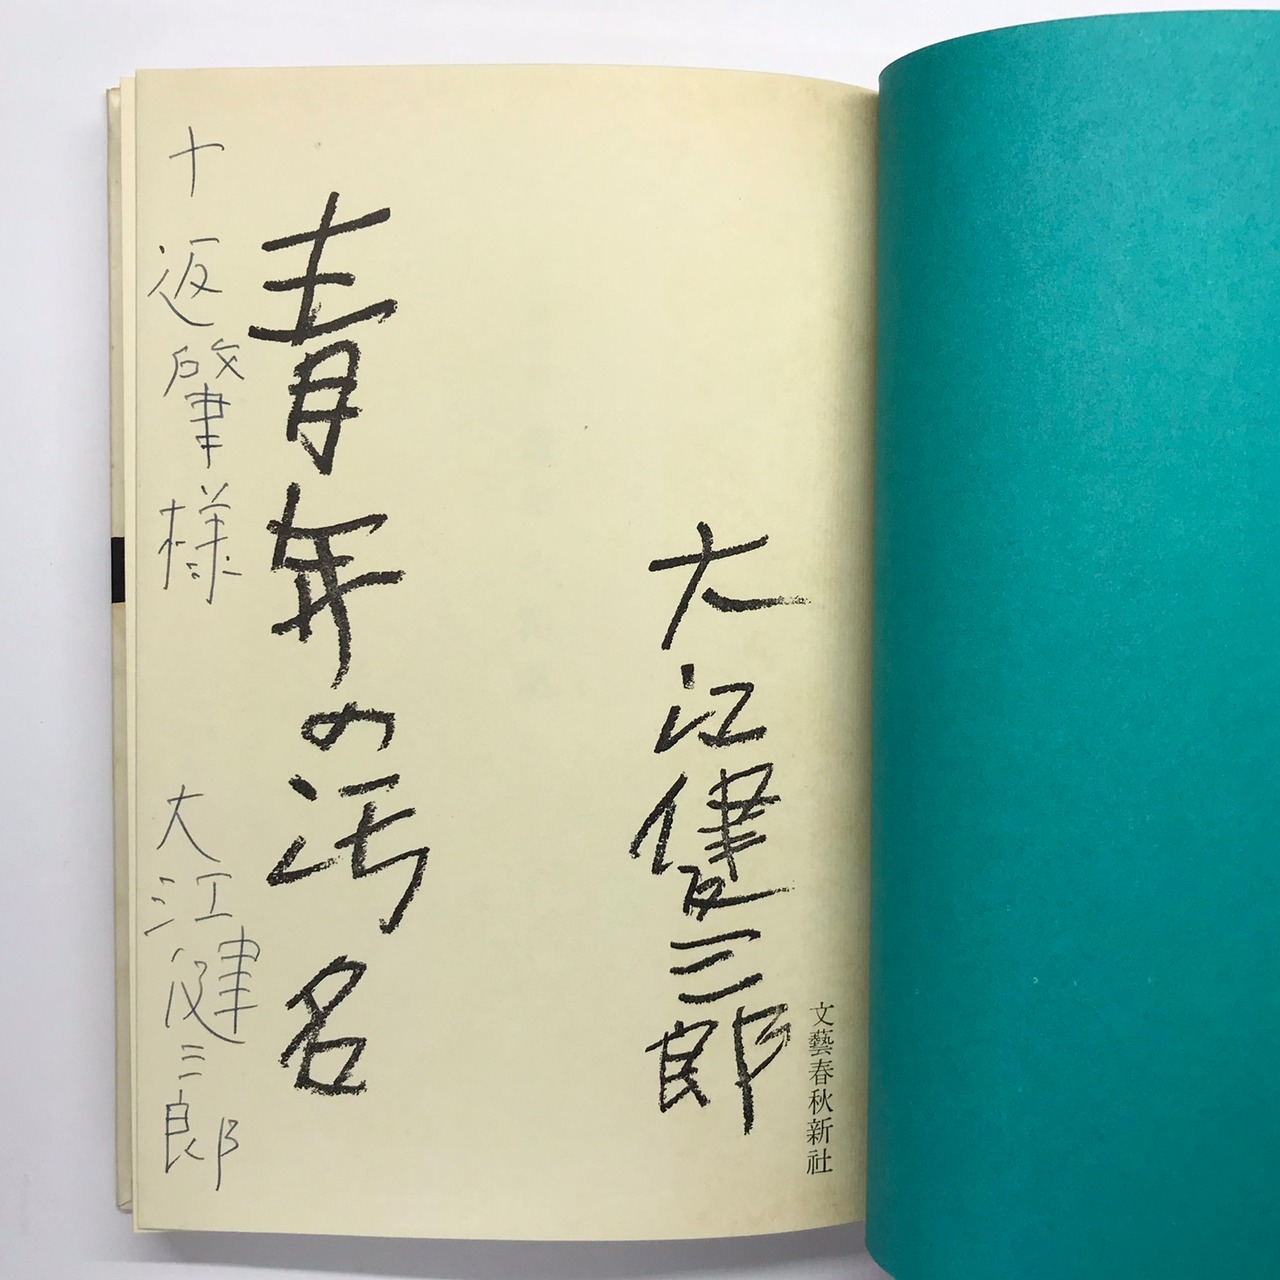 文藝春秋新社
大江健三郎
青年の汚名
十返肇様 大江健三郎